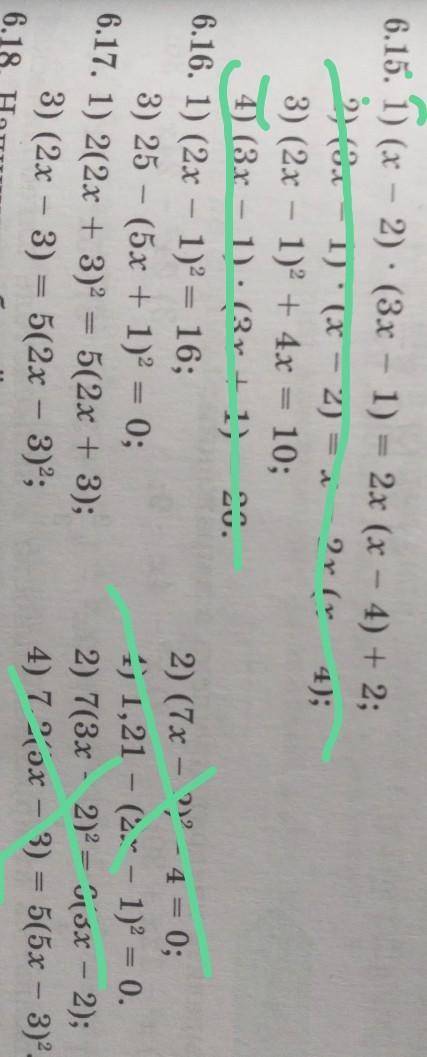 6.15. 1) (x − 2) · (3x − 1) = 2x (x − 4) + 2;
2) (3x − 1) · (x − 2) = x − 2x (x 4);
3) (2x − 1)² + 4x = 10;
4) (3x − 1) · (3x + 1) 26.
6.16. 1) (2x − 1)² = 16; 2) (7x − 2)² 4 = 0;
3) 25 − (5x + 1)² = 0; 4) 1,21 − (2x − 1)² = 0.
6.17. 1) 2(2x + 3)² = 5(2x + 3); 2) 7(3x − 2)² = 6(3x − 2);
3) (2x − 3) = 5(2x − 3)²; 4) 7,2(5x − 3) = 5(5x − 3)².
6.18.